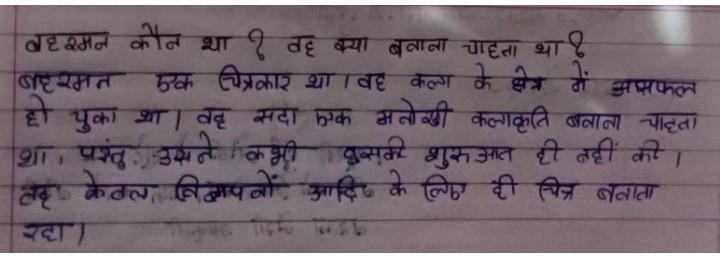 बहरमन कौन था ? वह क्या बनाना चाहता था ?
बहरमन एक चित्रकार था । वह कला के क्षेत्र में असफल
हो चुका था । वह सदा एक अनोखी कलाकृति बनाना चाहता
था, परंतु उसने कभी इसकी शुरुआत ही नहीं की ।
वह केवल विज्ञापनों आदि के लिए ही चित्र बनाता
रहा ।